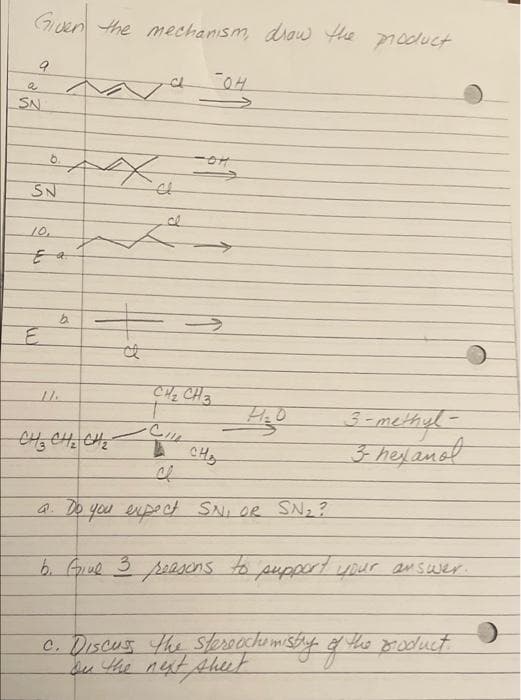 Given the mechanism, draw the product
9
a Cl ⁻OH
SN
b. ⁻OH
SN Cl
10. Cl
E a.
b.
E
Cl
11. CH₂ CH₃
H₂O 3-methyl-
CH₃ CH₂ CH₂ C CH₃ 3-hexanol
Cl
a. Do you expect SN₁ OR SN₂?
b. Give 3 reasons to support your answer.
c. Discuss the stereochemistry of the product.
on the next sheet